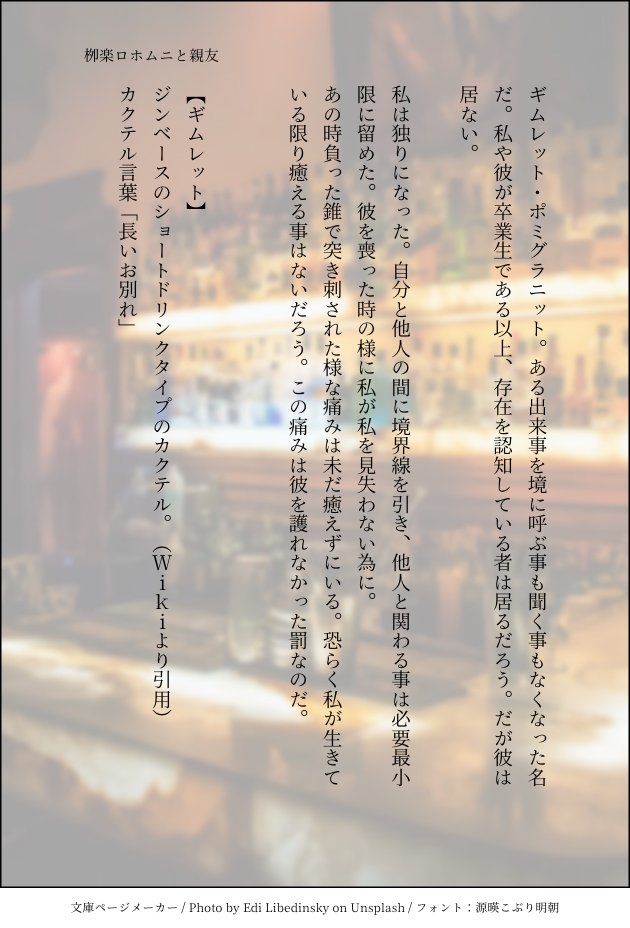 栁楽ロホムニと親友
ギムレット・ポミグラニット。ある出来事を境に呼ぶ事も聞く事もなくなった名
だ。私や彼が卒業生である以上、存在を認知している者は居るだろう。だが彼は
居ない。
私は独りになった。自分と他人の間に境界線を引き、他人と関わる事は必要最小
限に留めた。彼を喪った時の様に私が私を見失わない為に。
あの時負った錐で突き刺された様な痛みは未だ癒えずにいる。恐らく私が生きて
いる限り癒える事はないだろう。この痛みは彼を護れなかった罰なのだ。
【ギムレット】
ジンベースのショートドリンクタイプのカクテル。（Ｗｉｋｉより引用）
カクテル言葉「長いお別れ」
文庫ページメーカー / Photo by Edi Libedinsky on Unsplash / フォント：源暎こぶり明朝